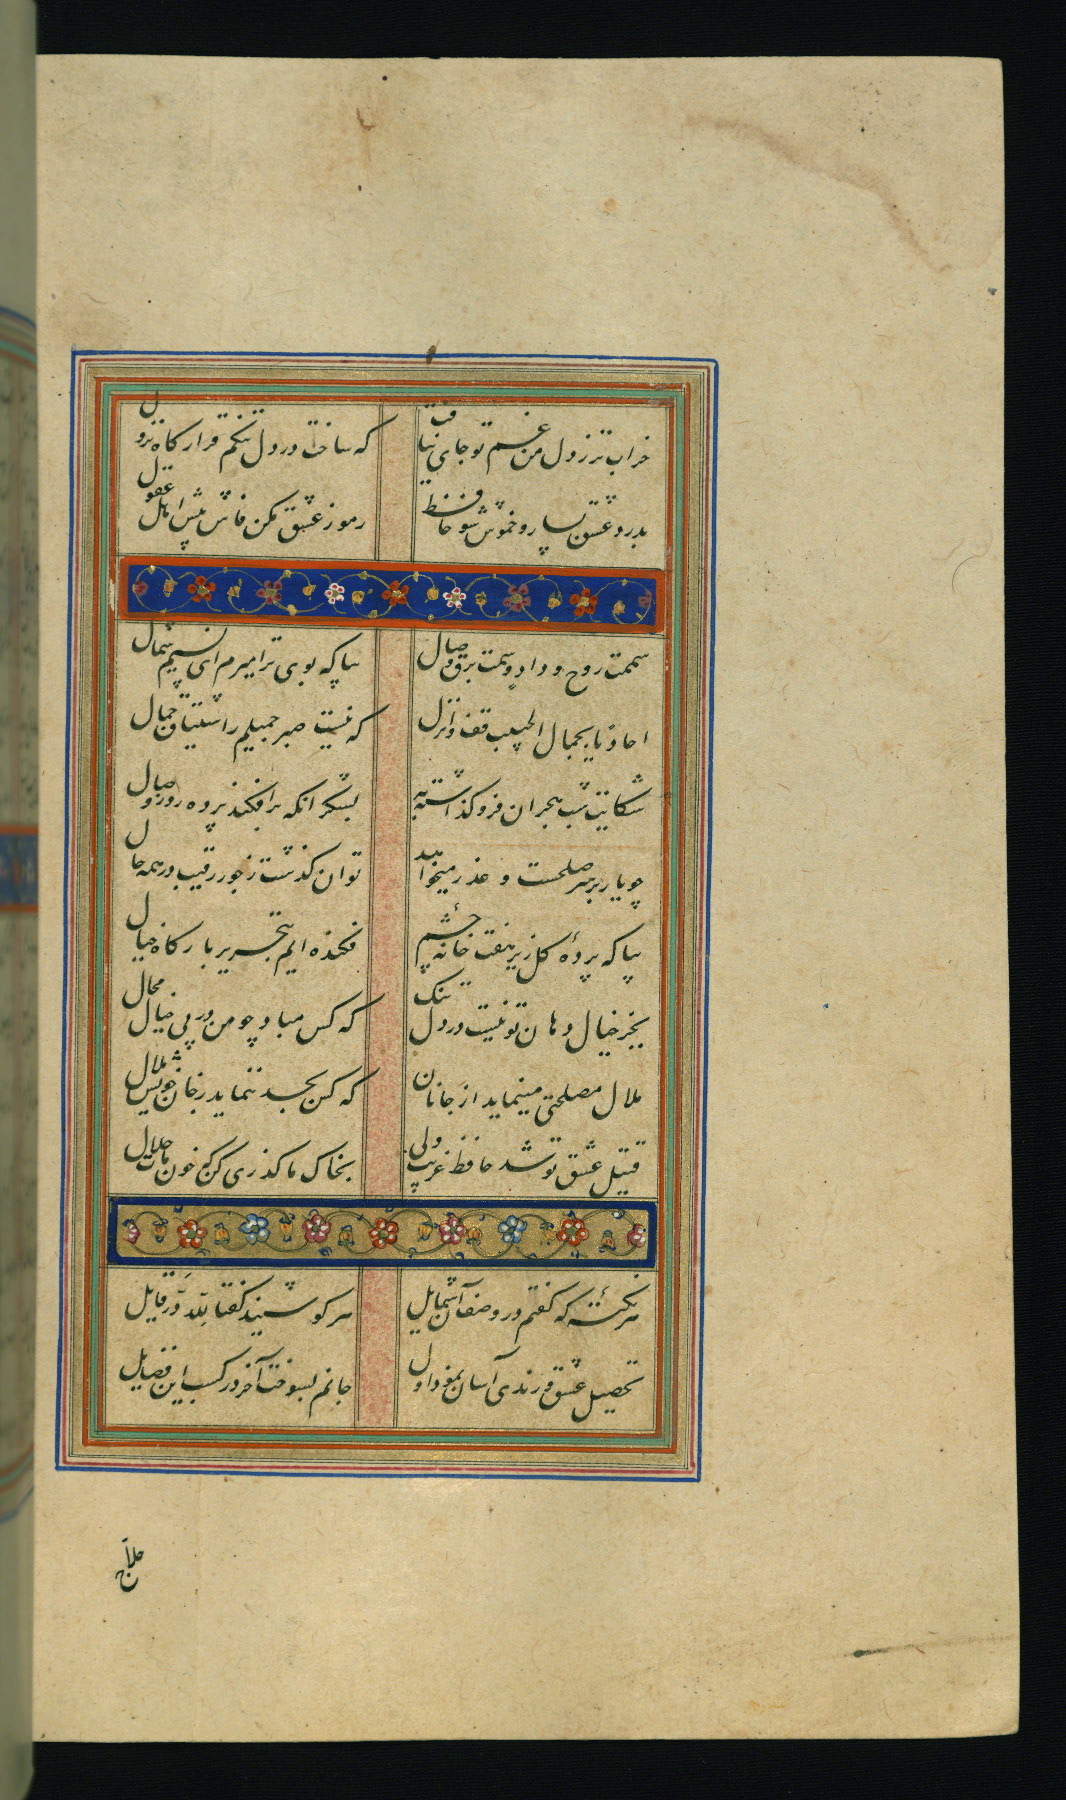 خراب تر ز دل من غم تو جای نیافت که ساخت در دل تنکم قرارکاه نزول
بدرد عشق بساز و خموش شو حافظ رموز عشق مکن فاش پیش اهل عقول
شممت روح وداد و شمت برق وصال بیا که بوی ترا میرم ای نسیم شمال
احادیا بجمال الحبیب قف وانزل که نیست صبر جمیلم ز اشتیاق جمال
شکایت شب هجران فرو کذاشته به بشکر آنکه برافکند پرده روز وصال
چو یار بر سر صلحست و عذر میخواهد توان کذشت ز جور رقیب در همه حال
بیا که پردهٔ کلریز هفت خانه چشم فکنده ایم بتحریر بارکاه خیال
بجز خیال دهان تو نیست در دل تنک که کس مباد چو من در پی خیال محال
ملال مصلحتی مینماید از جانان که کس بجد ننماید ز جان خویش ملال
قتیل عشق تو شد حافظ غریب ولی بخاک ما کذری کن که خون مات حلال
هر نکتهٔ که کفتم در وصف آن شمایل هر کو شنید کفتا لله در قایل
تحصیل عشق و رندی آسان نمود اول جانم بسوخت آخر در کسب این فضایل
حلاج